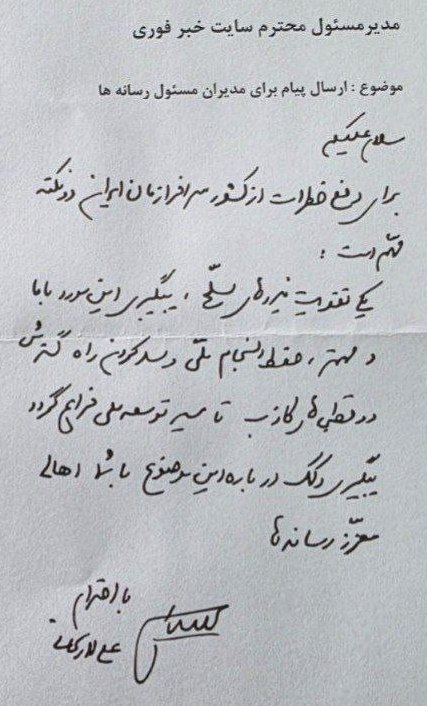 مدیرمسئول محترم سایت خبر فوری
موضوع : ارسال پیام برای مدیران مسئول رسانه ها
سلام علیکم
برای رفع خطرات از کشور سرافرازمان ایران دو نکته
مهّم است :
یکی تقویت نیروهای مسلّح ، پیگیری این مورد با ما
و مهمتر ، حفظ انسجام ملّی و سد کردن راه گسترش
دو قطبی های کاذب تا مسیر توسعه ملی فراهم گردد
پیگیری و کمک در باره این موضوع با شما اهالی
معزّز رسانه ها
با احترام
علی لاریجانی